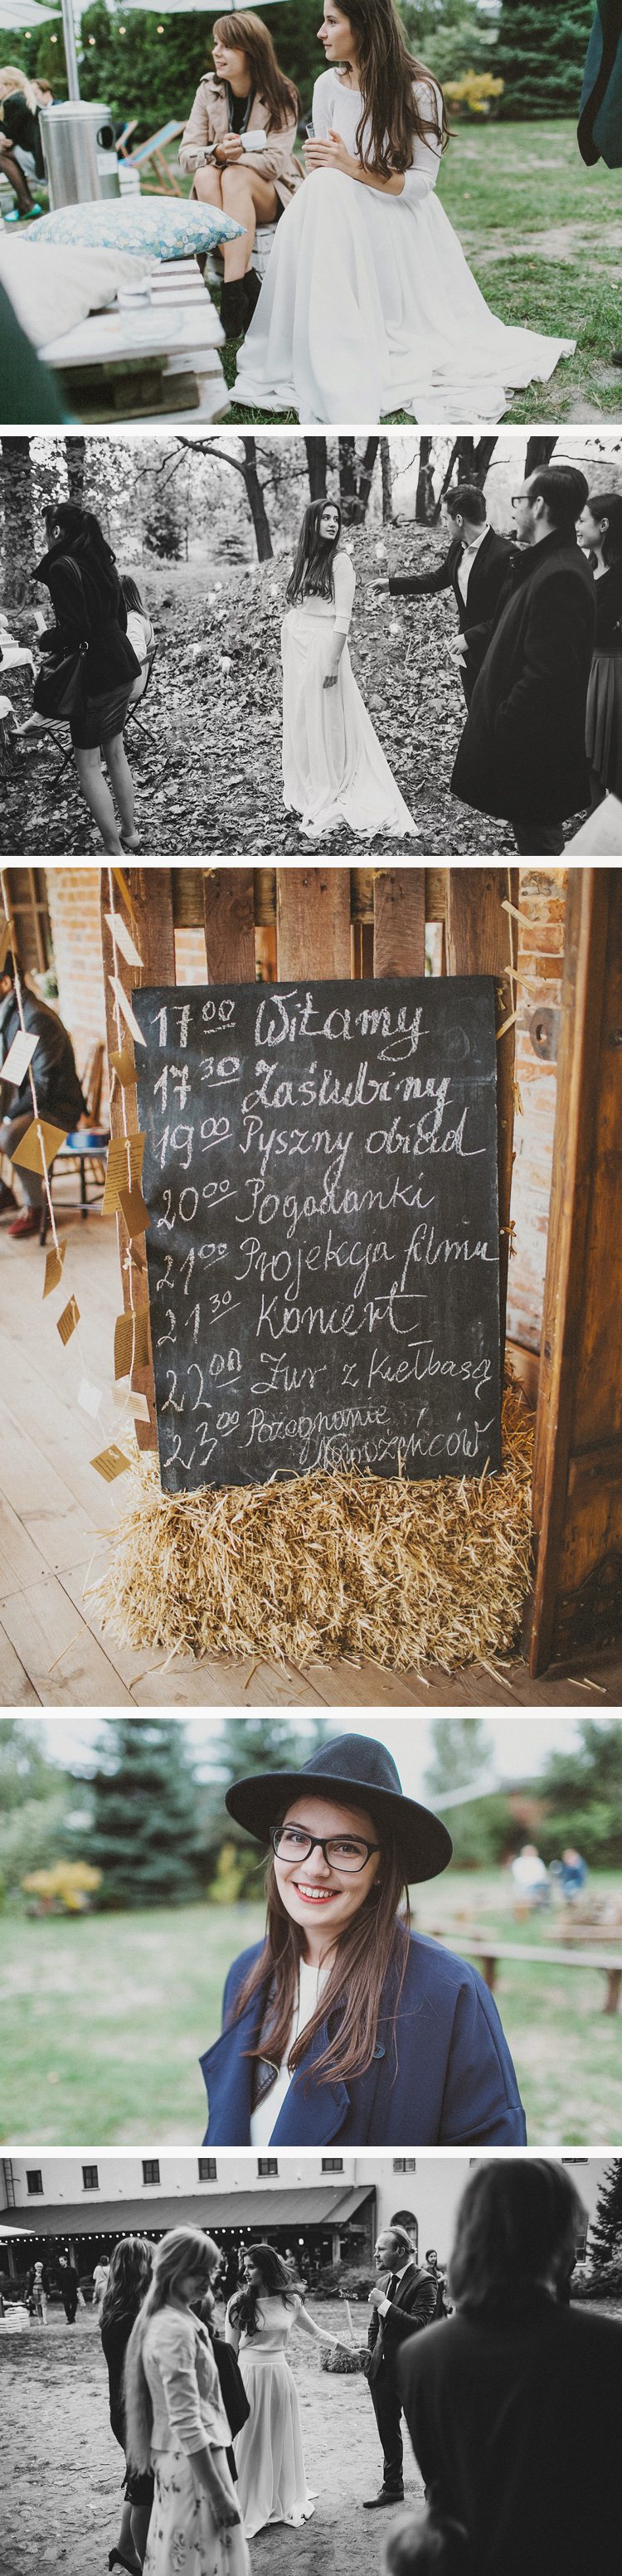 17 00 Witamy
17 30 Zaślubiny
19 00 Pyszny obiad
20 00 Pogadanki
21 00 Projekcja filmu
21 30 Koncert
22 00 Żur z Kiełbasą
23 00 Pożegnanie
Nowożeńców